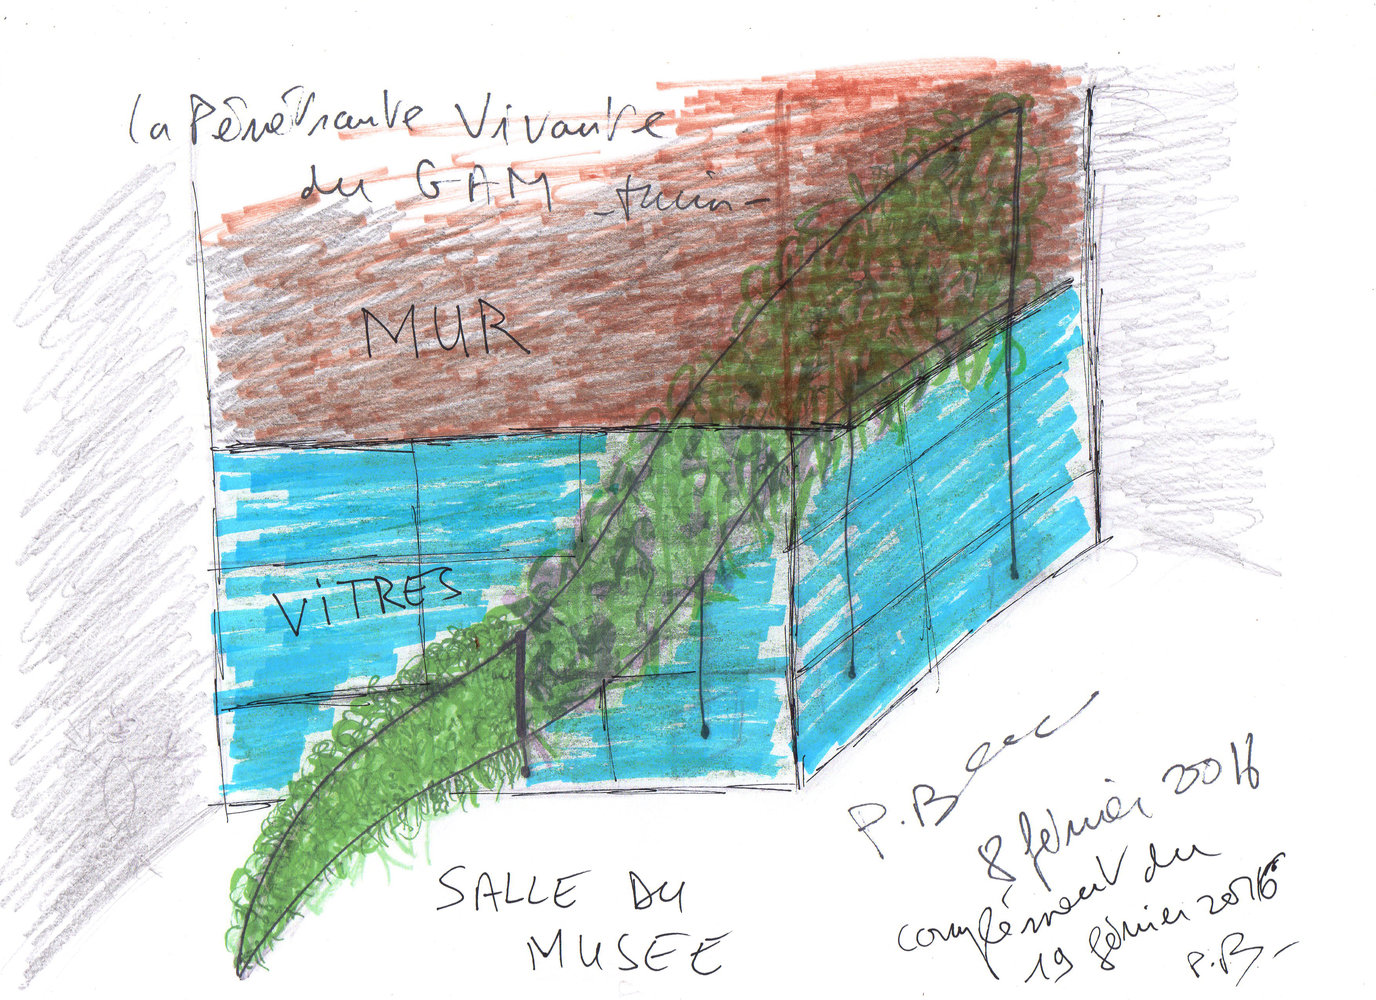 La Pénétrante Vivante
du GAM - Turin -
MUR
VITRES
SALLE DU
MUSEE
P. Blanc
8 février 2016
complément du
19 février 2016
P.B-